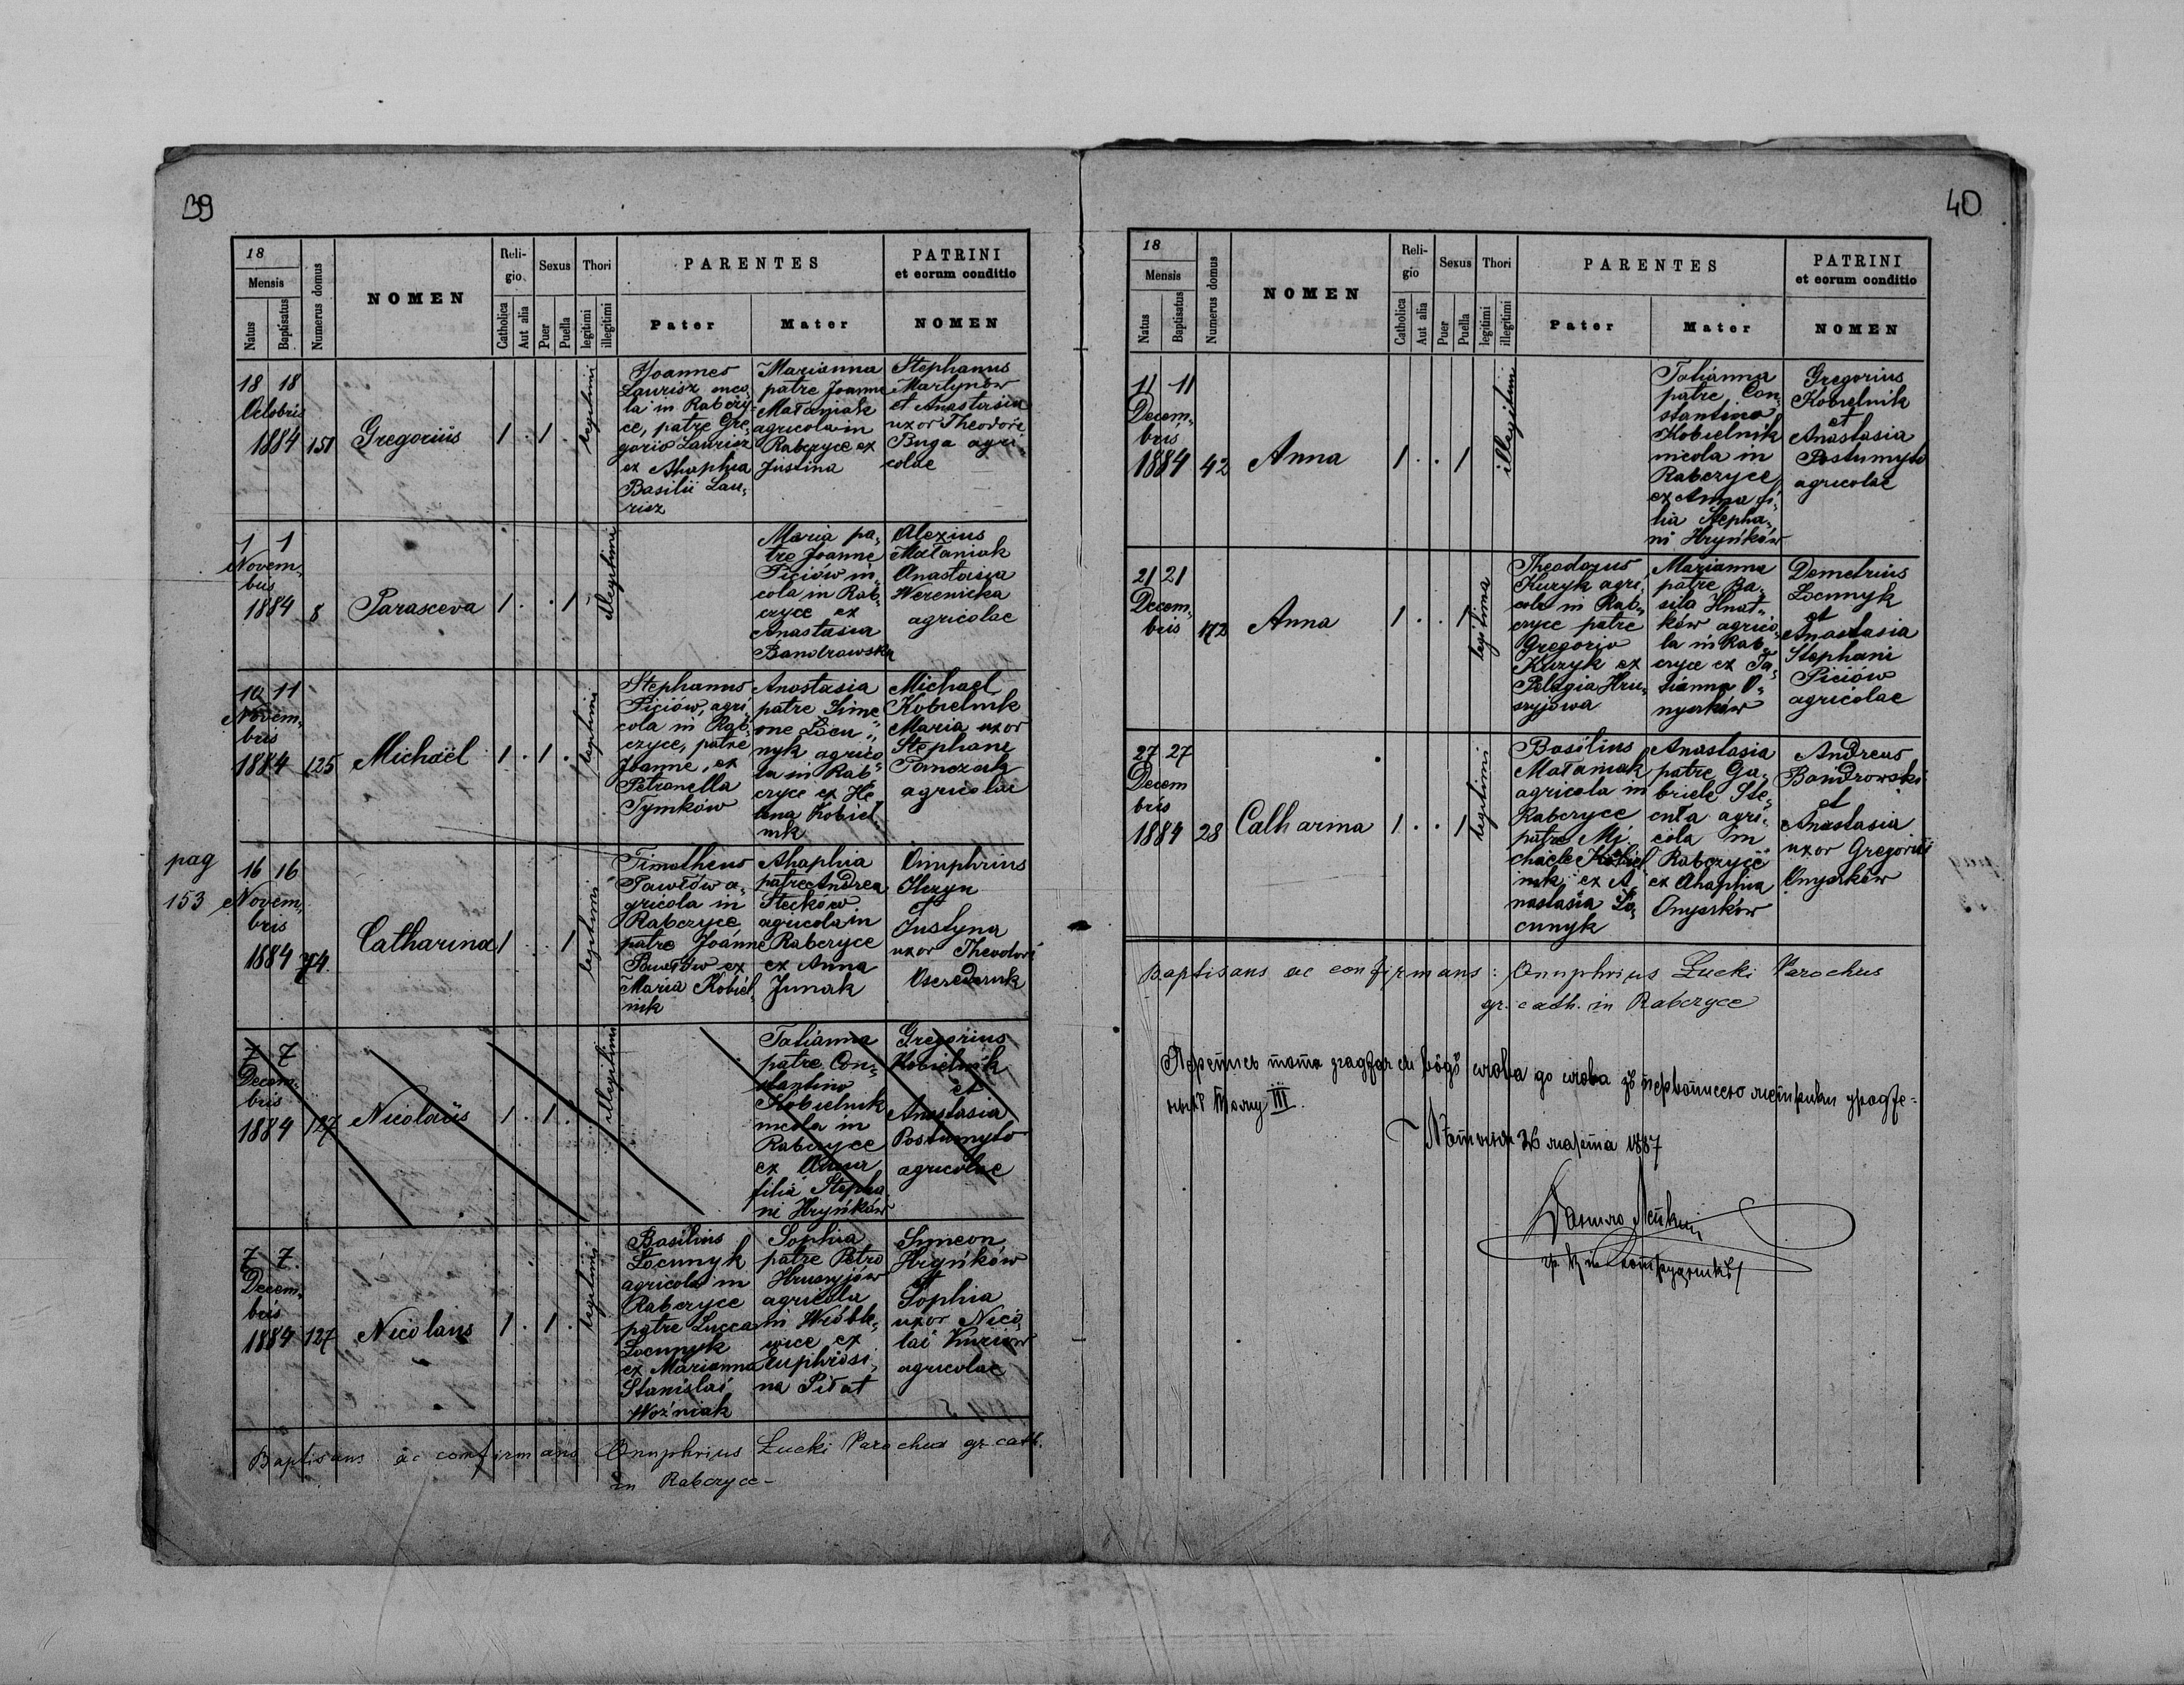 39
18
Mensis
Natus
Baptisatus
Numerus domus
NOMEN
Reli-
gio
Catholica
Aut alia
Sexus
Puer
Puella
Thori
legitimi
illegitimi
PARENTES
Pater
Mater
PATRINI
et eorum conditio
NOMEN
18 18
Octobris
1884
151
Gregorius
1 . 1 .
legitimi
Joannes
Laurisz inco,
la in Rabczy-
ce, patre Gre,
gorio Laurisz
ex Ahaphia
Basilii Lau,
risz
Marianna
patre Joanne
Małaniak
agricola in
Rabczyce ex
Justina
Stephanus
Martynów
et Anastasia
uxor Theodori
Buga agri
colae
1 1
Novem,
bris
1884
8
Parasceva
1 . . 1
illegitimi
Maria pa,
tre Joanne
Piciów in,
cola in Rab,
czyce ex
Anastasia
Bandrowska
Alexius
Małaniak
Anastasia
Werenicka
agricolae
10 11
Novem,
bris
1884
125
Michaël
1 . 1 .
legitimi
Stephanus
Piciów, agri,
cola in Rab,
czyce, patre
Joanne, ex
Petronella
Tymków
Anastasia
patre Sime,
one Łocu,,
nyk agrico
la in Rab,
czyce ex He
lena Kobiel,
nik
Michael
Kobielnik
Maria uxor
Stephani
agricolae
pag
153
16 16
Novem,
bris
1884
74.
Catharina
1 . . 1
legitimi
Timotheus
Pawłów a,
gricola in
Rabczyce
patre Joánne
Pawłów ex
Maria Kobiel,
nik
Ahaphia
patre Andrea
Stecków
agricola in
Rabczyce
ex Anna
Junak
et
Justyna
uxor Theodori
7 7
Decem,
bris
1884
127
Nicolaüs
1 . 1 .
illegitimi
Tatianna
patre Con,
stantino
Kobielnik
incola in
Rabczyce
ex Anna
filia Stepha
ni Hryńków
Gregorius
Kobielnik
et
Anastasia
Postumyto
agricolae
7 7.
Decem,
bris
1884
127
Nicolaus
1 . 1 .
legitimi
Basilius
Łocunyk
agricola in
Rabczyce
patre Lucca
Łocunyk
ex Marianna
Stanislai
Woźniak
Sophia
patre Petro
Hruszyjów
agricola
in Wróble,
wice ex
Euphrosi,
na Piłat
Symeon
Hryńków
et
Sophia
uxor Nico,
lai
agricolae
Baptisans ac confirmans Onuphrius Łucki Parochus gr. cath.
in Rabczyce -
40
18
Mensis
Natus
Baptisatus
Numerus domus
NOMEN
Reli-
gio
Catholica
Aut alia
Sexus
Puer
Puella
Thori
legitimi
illegitimi
PARENTES
Pater
Mater
PATRINI
et eorum conditio
NOMEN
11 11
Decem,
bris
1884
42
Anna
1 . . 1
illegitimi
Tatiánna
patre Con,
stantino
Kobielnik
incola in
Rabczyce,
ex Anna fi,
lia Stepha,
ni Hryńków
Gregorius
Kobielnik
et
Anastasia
Postumyto
agricolae
21 21
Decem,
bris
172
Anna
1 . . 1
legitima
Theodorus
Kuzyk agri,
cola in Rab,
czyce patre
Gregorio
Kuzyk ex
Pelagia Hru,
szyjowa
Marianna
patre Ba,
sila Hnat,
ków agrico,
la in Rab,
czyce ex Ta,
tiánna O,
nyśków
Demetrius
Łocunyk
et
Anastasia
Stephani
Piciów
agricolae
27 27
Decem
bris
1884
28
Catharina
1 . . 1
legitimi
Basilius
Małaniak
agricola in
Rabczyce
patre Mi,
chaele Kobiel
nik, ex A,
nastasia Ło,
cunyk
Anastasia
patre Ga,
briele Ste,
agri,
cola in
Rabczyce
ex Ahaphia
Onyśków
Andreas
Bandrowski
et
Anastasia
uxor Gregorii
Onyśków
Baptisans ac confirmans: Onuphrius Łucki Parochus
gr. cath. in Rabczyce
слова до слова зъ метрики
Тому III.
26 марта 1887